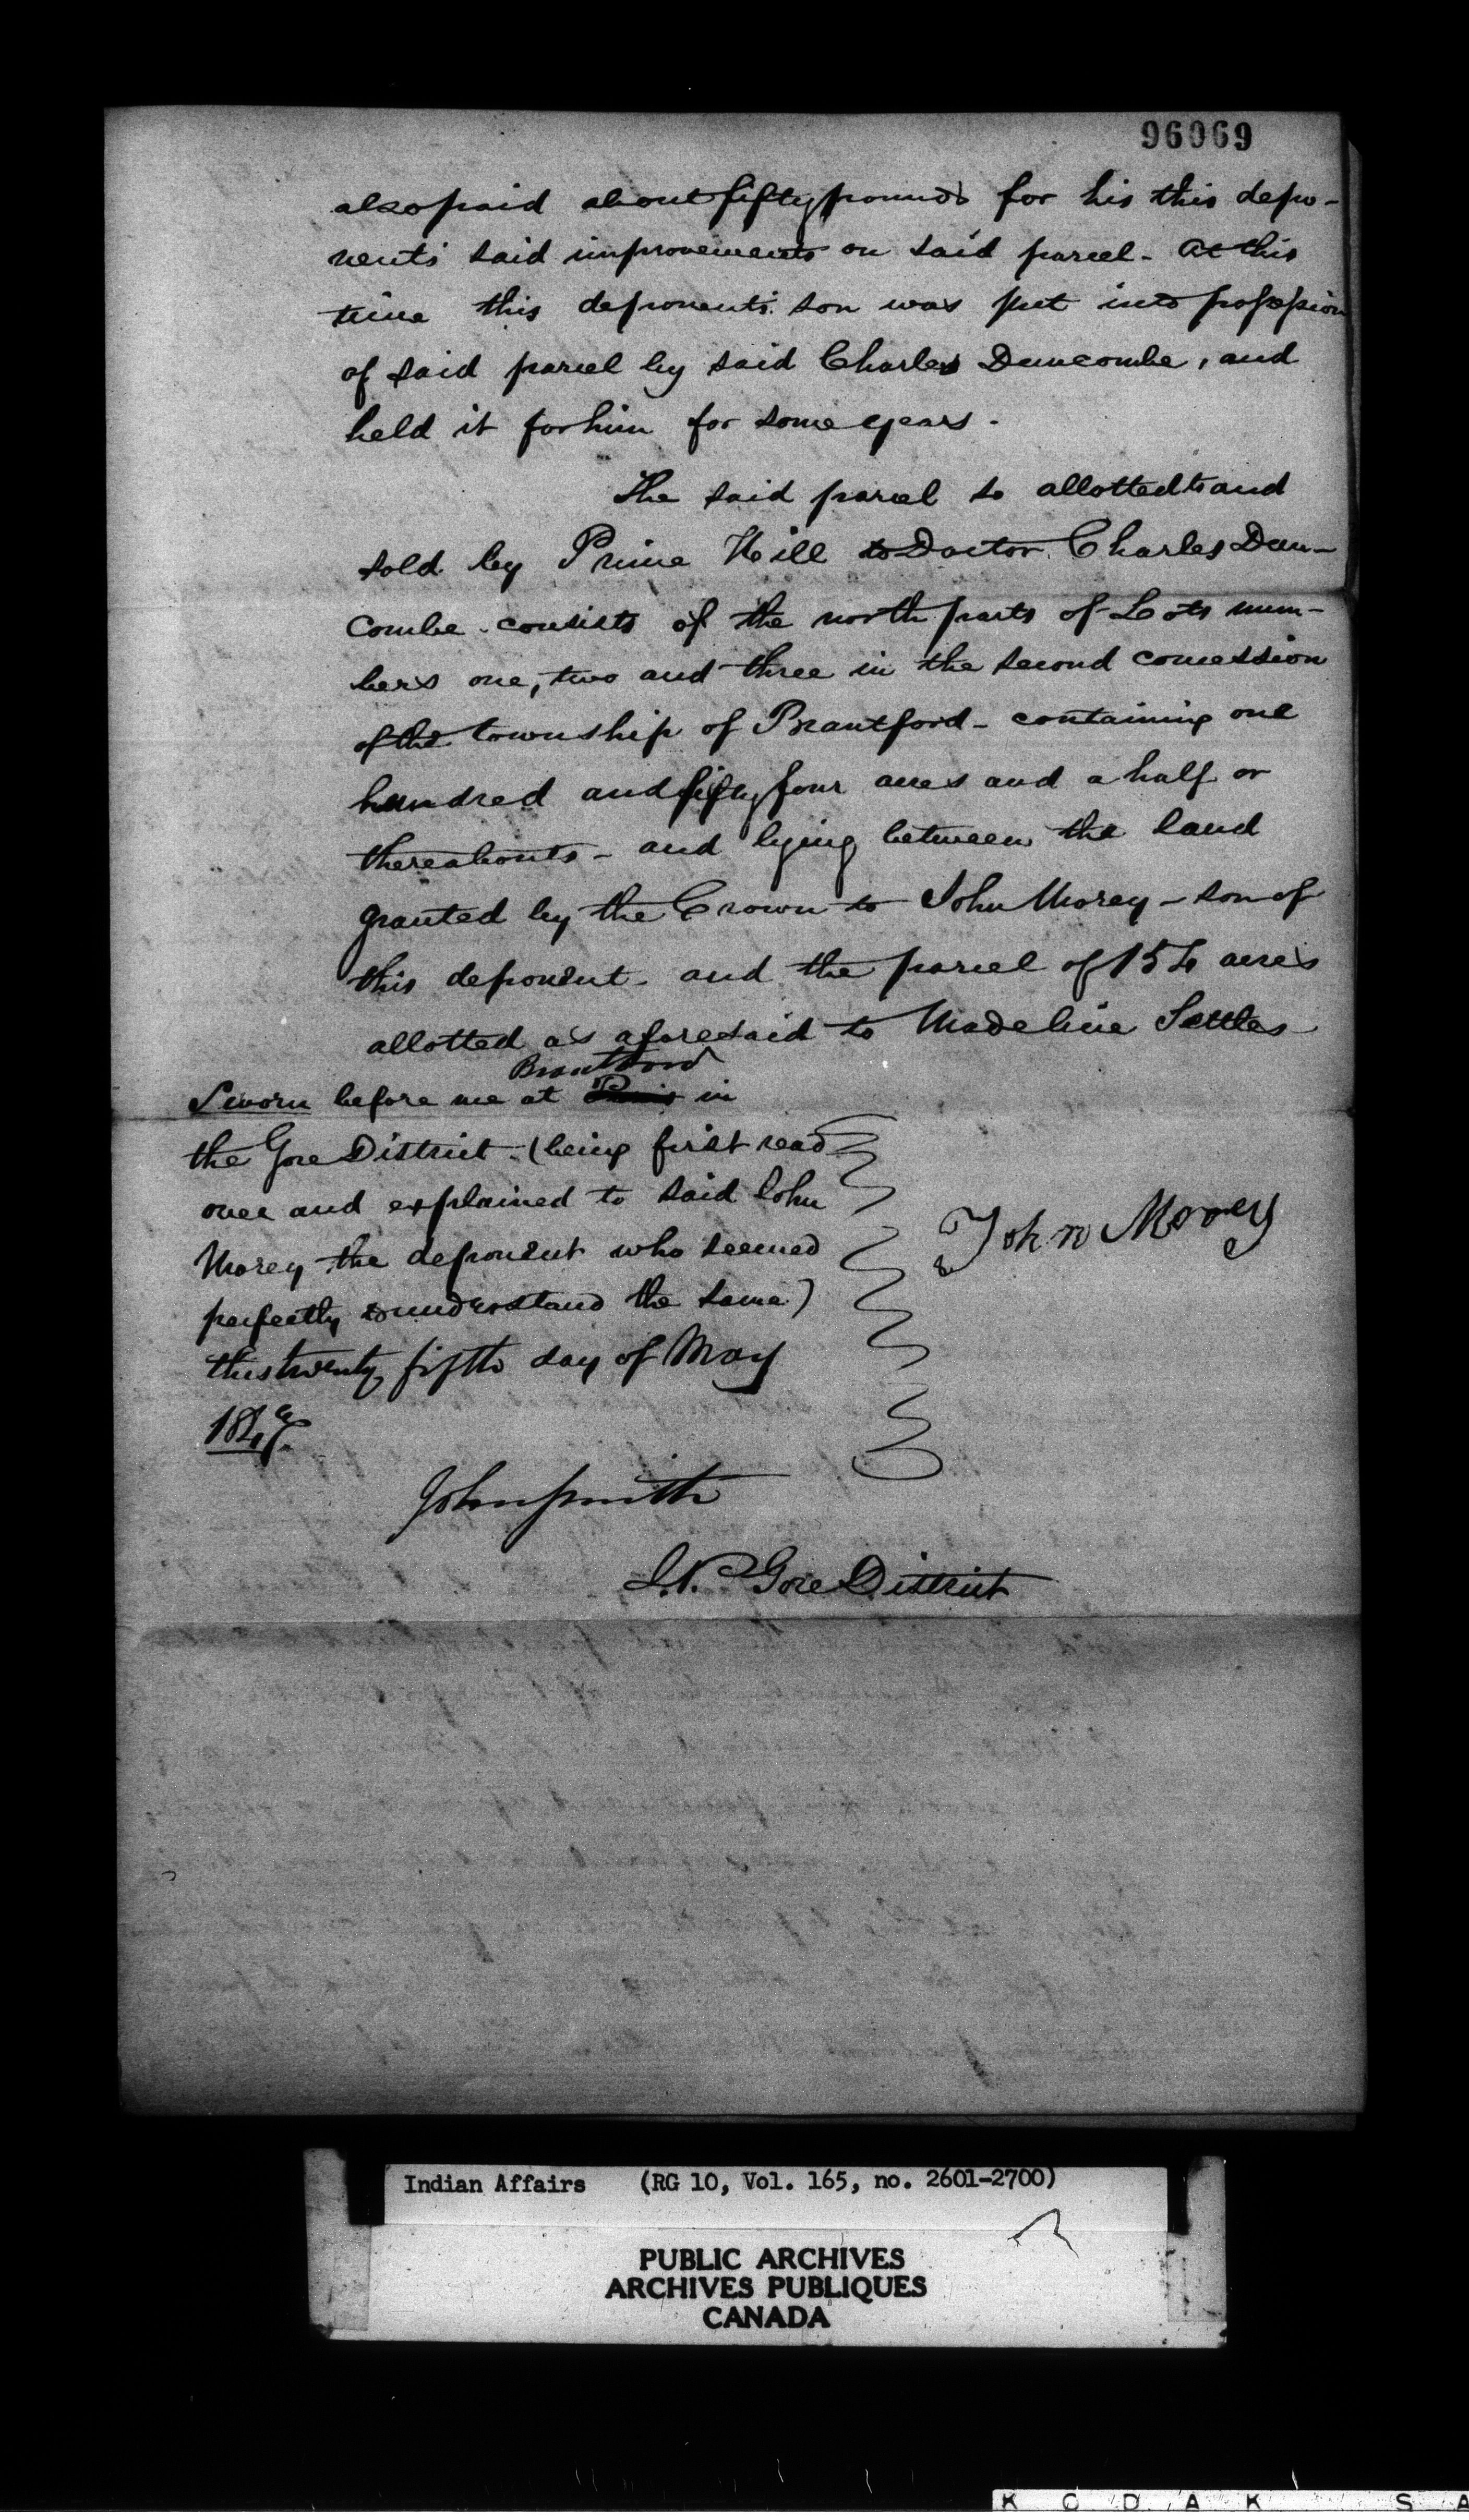 96069
also paid about fifty pounds for his this depo-
nents said improvements on said parcel - At this
time this deponents son was put into possession
of said parcel by said Charles Duncombe, and
held it for him for some years.
The said parcel so allotted to and
sold by Prime Hill to Doctor Charles Dun-
combe consists of the north parts of Lots num-
bers one, two and three in the second concession
of the township of Brantford - containing one
hundred and fifty four acres and a half or
thereabouts - and lying between the land
granted by the Crown to John Morey - son of
this deponent - and the parcel of 154 acres
allotted as aforesaid to Madeline Settles
Brantford
Sworn before me at Paris in
the Gore District - (being first read
over and explained to said John
Morey the deponent who seemed
perfectly to understand the same)
this twenty fifth day of May
John Morey
John Smith
J.P. Gore District
Indian Affairs (RG 10, Vol. 165, no. 2601-2700)
PUBLIC ARCHIVES
ARCHIVES PUBLIQUES
CANADA
K O D A K S A